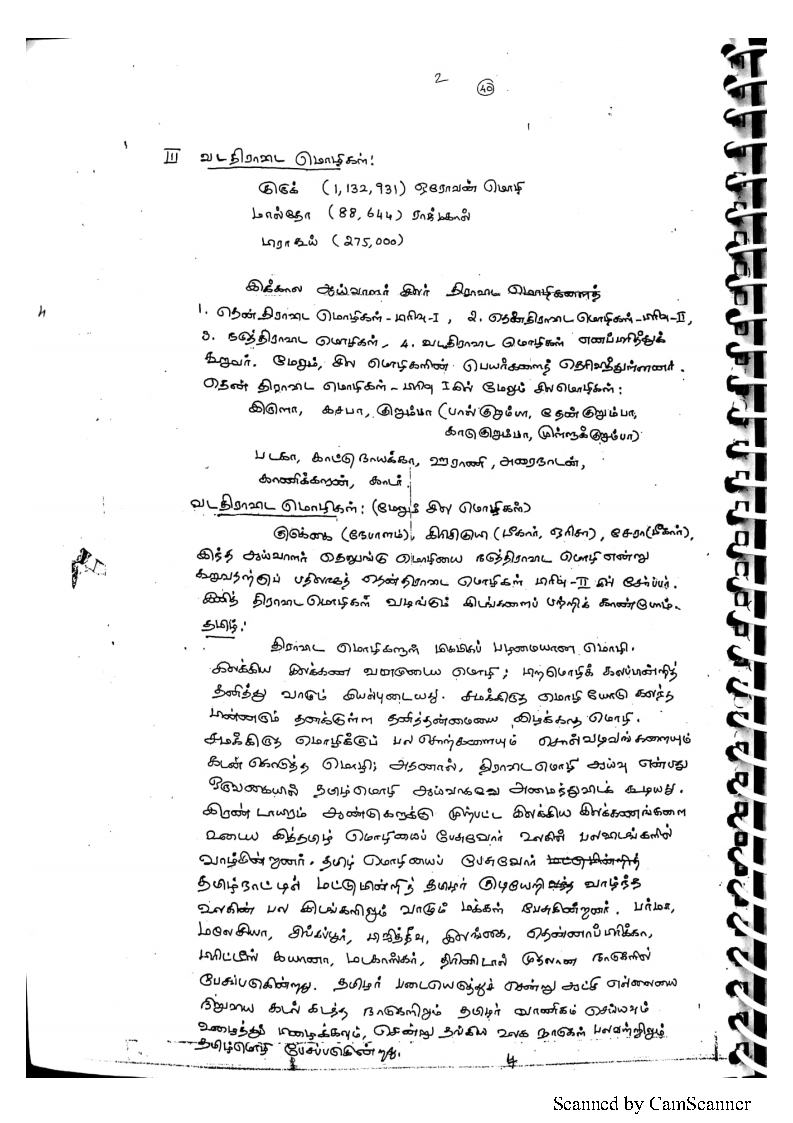 2 (40)
III வடதிராவிட மொழிகள்:
குருக் (1,132,931) ஒரோவன் மொழி
மால்தோ (88,644) ராஜ்மகால்
பிராகூய் (275,000)
இக்கால ஆய்வாளர் இளர் திராவிட மொழிகளைத்
4
1. தென்திராவிட மொழிகள் - பிரிவு-I, 2. தென்திராவிட மொழிகள் - பிரிவு-II,
3. நடுத்திராவிட மொழிகள், 4. வடதிராவிட மொழிகள் எனப்பிரித்துக்
கூறுவர். மேலும், இல மொழிகளின் பெயர்களைத் தெரிவித்துள்ளனர்.
தென் திராவிட மொழிகள் - பிரிவு I இல் மேலும் சிலமொழிகள்:
இருளா, கசபா, குறும்பா (பால்குறும்பா, தேன்குறும்பா,
காடுகுறும்பா, முள்ளுக்குறும்பா)
படகா, காட்டுநாயக்கா, ஊராணி, அரைநாடன்,
காணிக்காரன், காடர்.
வடதிராவிட மொழிகள்: (மேலும் இல மொழிகள்)
(நேபாளம்), (பீகார், ஒரிசா), சேரா(பீகார்),
இந்த ஆய்வாளர் தெலுங்கு மொழியை நடுத்திராவிட மொழி என்று
கூறுவதற்குப் பதிலாகத் தென்திராவிட மொழிகள் பிரிவு-II இல் சேர்ப்பர்.
இனித் திராவிடமொழிகள் வழங்கும் இடங்களைப் பற்றிக் காண்போம்.
தமிழ்:
திராவிட மொழிகளுள் மிகமிகப் பழமையான மொழி.
இலக்கிய இலக்கண வளமுடைய மொழி; பிறமொழிக் கலப்பின்றித்
தனித்து வாழும் இயல்புடையது. சமக்கிருத மொழியோடு கலந்த
பின்னரும் தனக்குள்ள தனித்தன்மையை இழக்காத மொழி.
சமக்கிருத மொழிக்குப் பல சொற்களையும் சொல்வடிவங்களையும்
கடன் கொடுத்த மொழி; அதனால், திராவிடமொழி ஆய்வு என்பது
ஒருவகையில் தமிழ்மொழி ஆய்வாகவே அமைந்துவிடக் கூடியது.
இரண்டாயிரம் ஆண்டுகளுக்கு முற்பட்ட இலக்கிய இலக்கணங்களை
உடைய இத்தமிழ் மொழியைப் பேசுவோர் உலகின் பலஇடங்களில்
வாழ்கின்றனர். தமிழ் மொழியைப் பேசுவோர் மட்டுமின்றித்
தமிழ்நாட்டில் மட்டுமின்றித் தமிழர் குடியேறி வாழ்ந்த
உலகின் பல இடங்களிலும் வாழும் மக்கள் பேசுகின்றனர். பர்மா,
மலேசியா, சிங்கப்பூர், பிஜித்தீவு, இலங்கை, தென்னாப்பிரிக்கா,
பிரிட்டிஸ் கயானா, மடகாஸ்கர், திரினிடால் முதலான நாடுகளில்
பேசப்படுகின்றது. தமிழர் படையெடுத்துச் சென்று ஆட்சி எல்லையை
நிறுவிய கடல் கடந்த நாடுகளிலும் தமிழர் வாணிகம் செய்யவும்
உழைத்துப் பிழைக்கவும், சென்று தங்கிய உலக நாடுகள் பலவற்றிலும்
தமிழ்மொழி பேசப்படுகின்றது.
4
Scanned by CamScanner